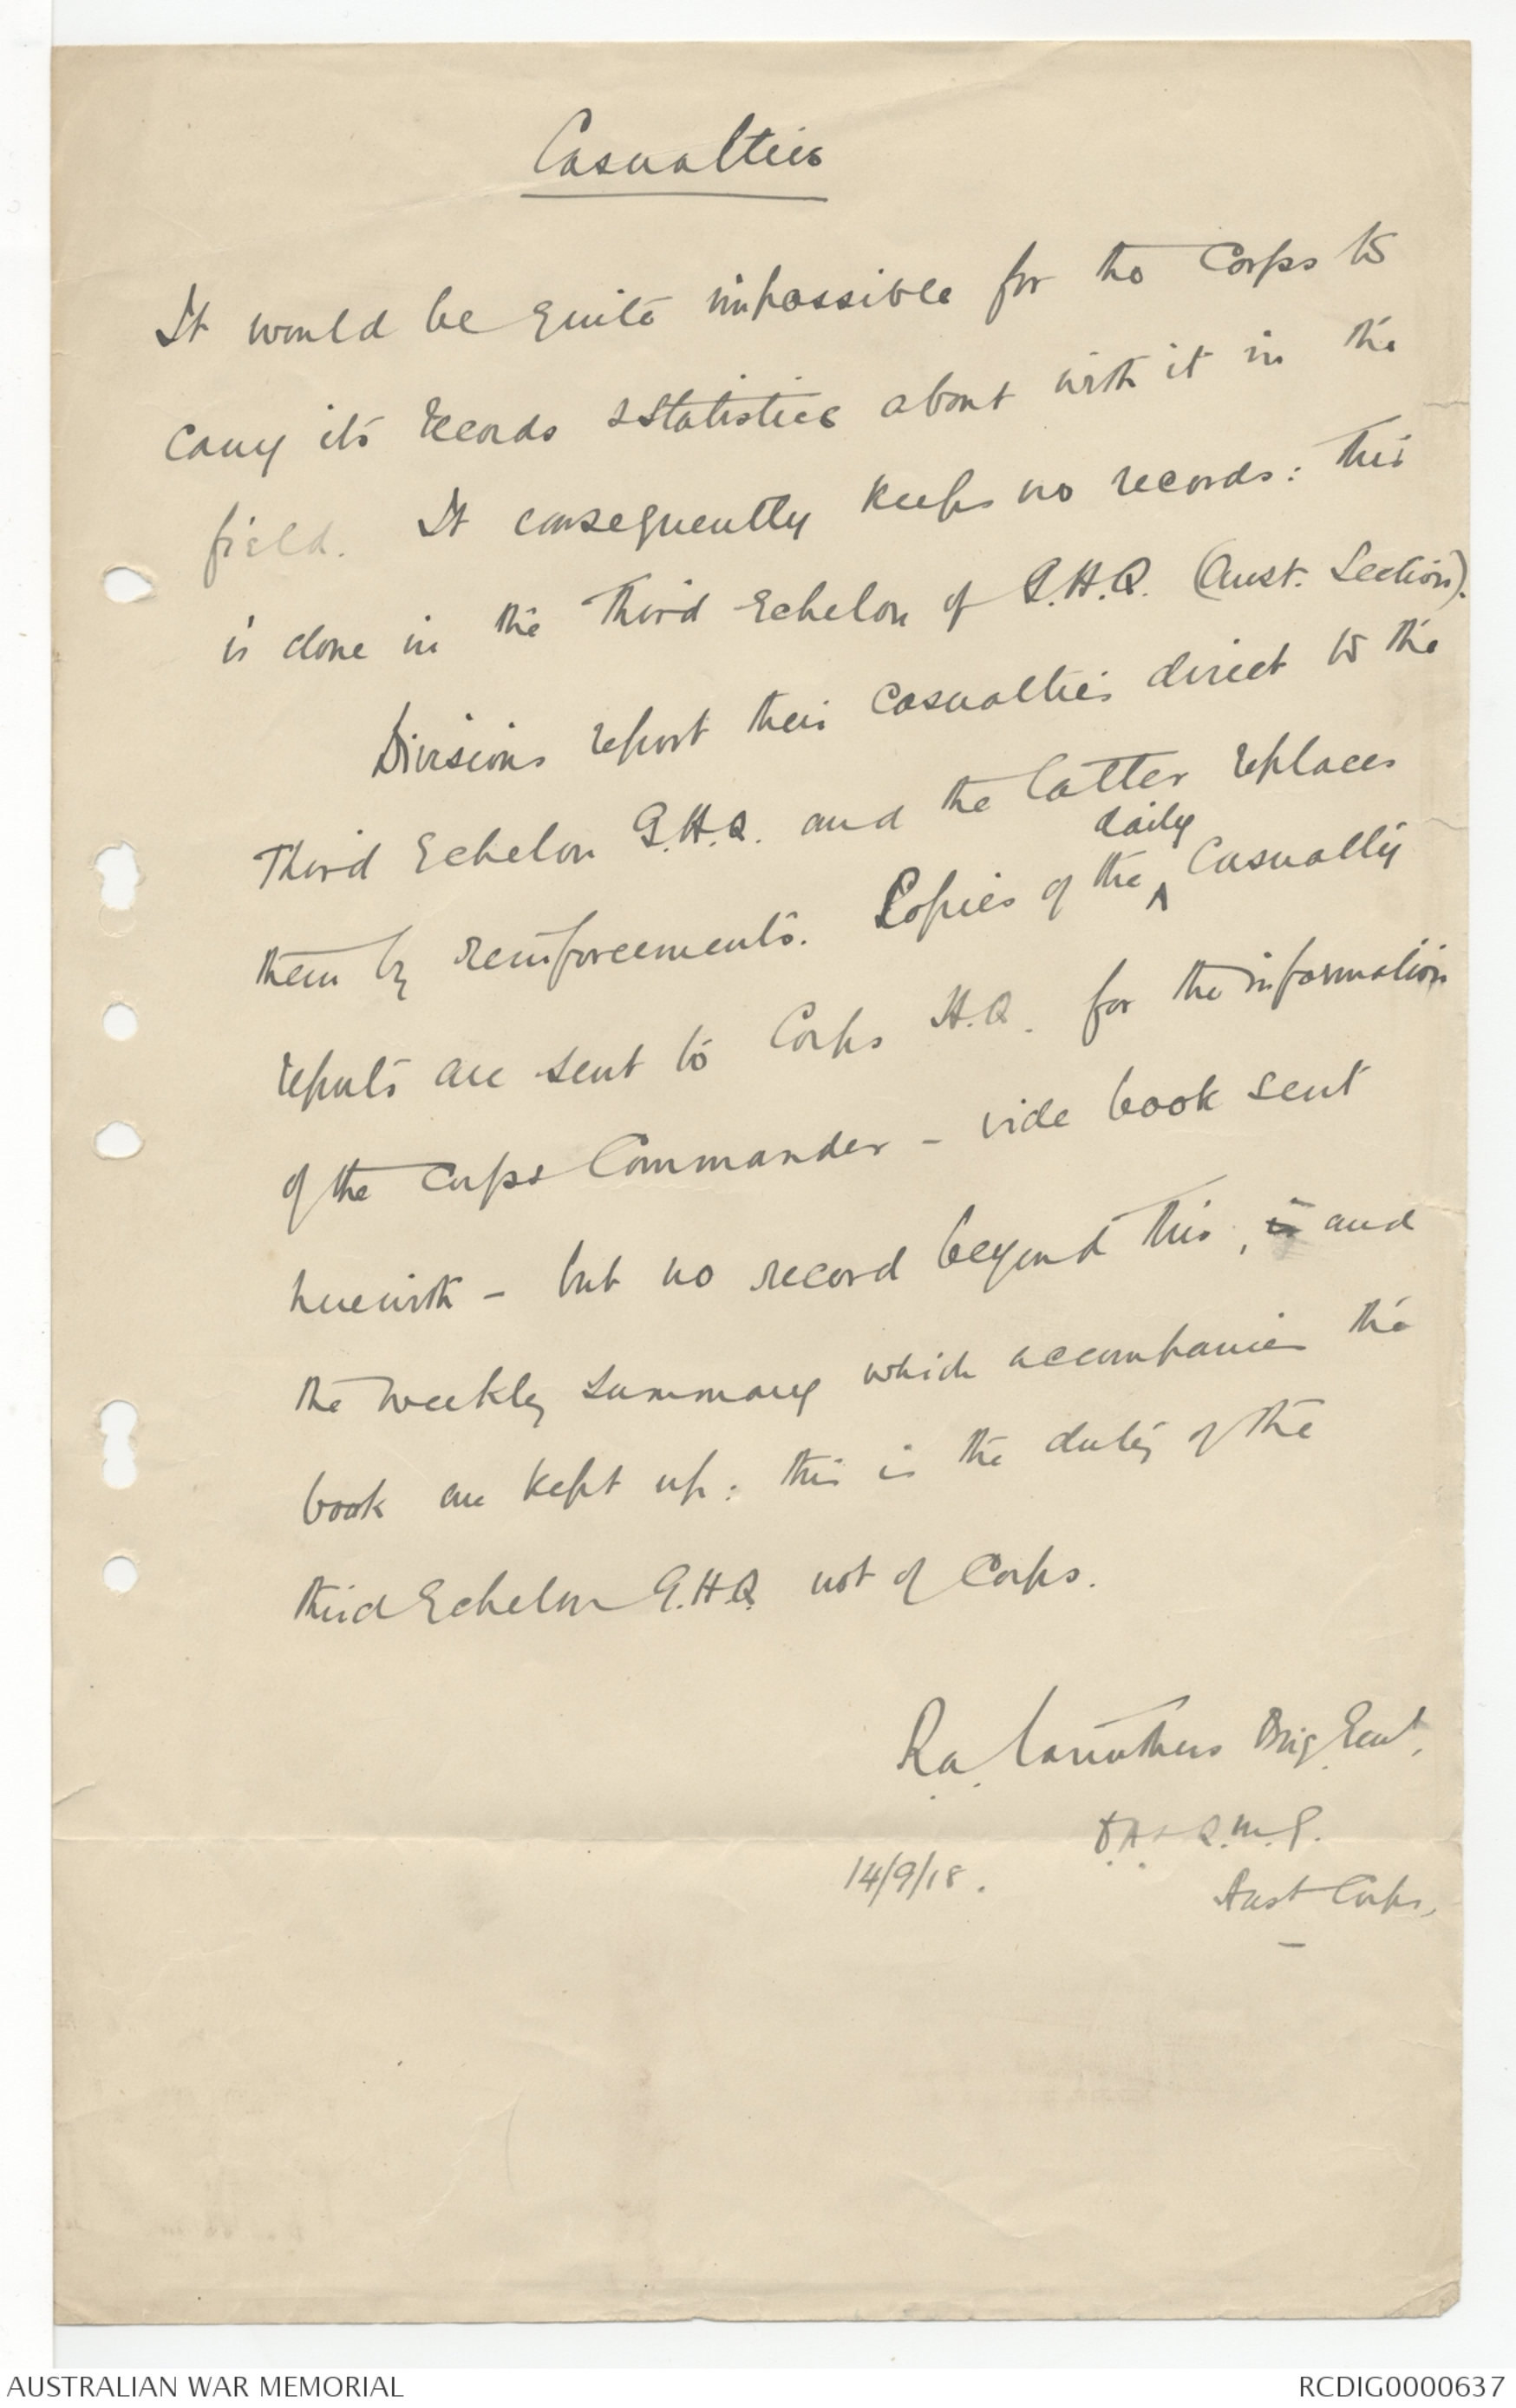 Casualties
It would be quite impossible for the Corps to
carry its records & statistics about with it in the
field. It consequently keeps no records: this
is done in the Third Echelon of G.H.Q. (Aust. Section).
Divisions report their casualties direct to the
Third Echelon G.H.Q. and the latter replaces
daily
them by reinforcements. Copies of the ^ Casualty
reports are sent to Corps H.Q. for the information
of the Corps Commander - vide book sent
herewith - but no record beyond this, is and
the weekly summary which accompanies the
book are kept up: this is the duty of the
third Echelon G.H.Q. not of Corps.
R.A. Carruthers Brig. Genl.
D.A. & Q.M.G.
14/9/18.
Aust Corps,
AUSTRALIAN WAR MEMORIAL
RCDIG0000637